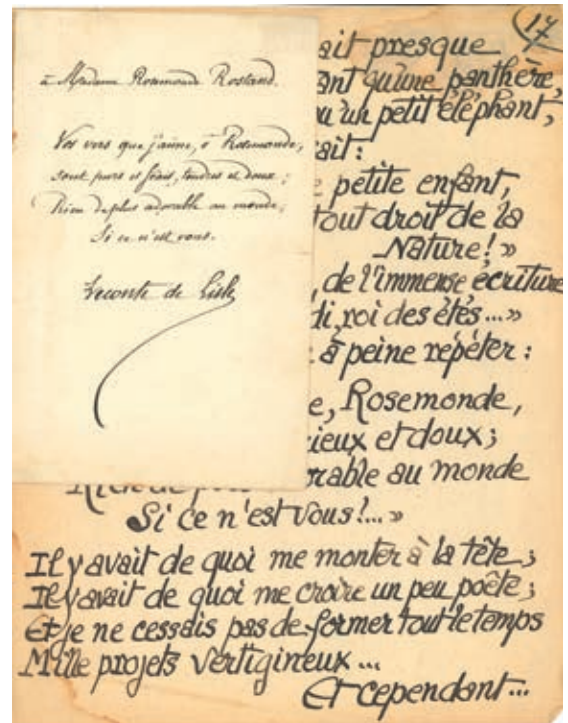 à Madame Rosemonde Rostand.
Vos vers que j'aime, ô Rosemonde,
sont purs et frais, tendres et doux;
Rien de plus adorable au monde,
Si ce n'est vous.
Leconte de Lisle
17
ait presque
ant qu'une panthère,
qu'un petit éléphant,
ait:
petite enfant,
tout droit de la
Nature!»
, de l'immense écriture
di, roi des étés...»
à peine répéter:
e, Rosemonde,
cieux et doux;
Rien de rable au monde
Si ce n'est Vous!...»
Il y avait de quoi me monter à la tête;
Il y avait de quoi me croire un peu poète;
Et je ne cessais pas de former tout le temps
Mille projets vertigineux...
Et cependant...